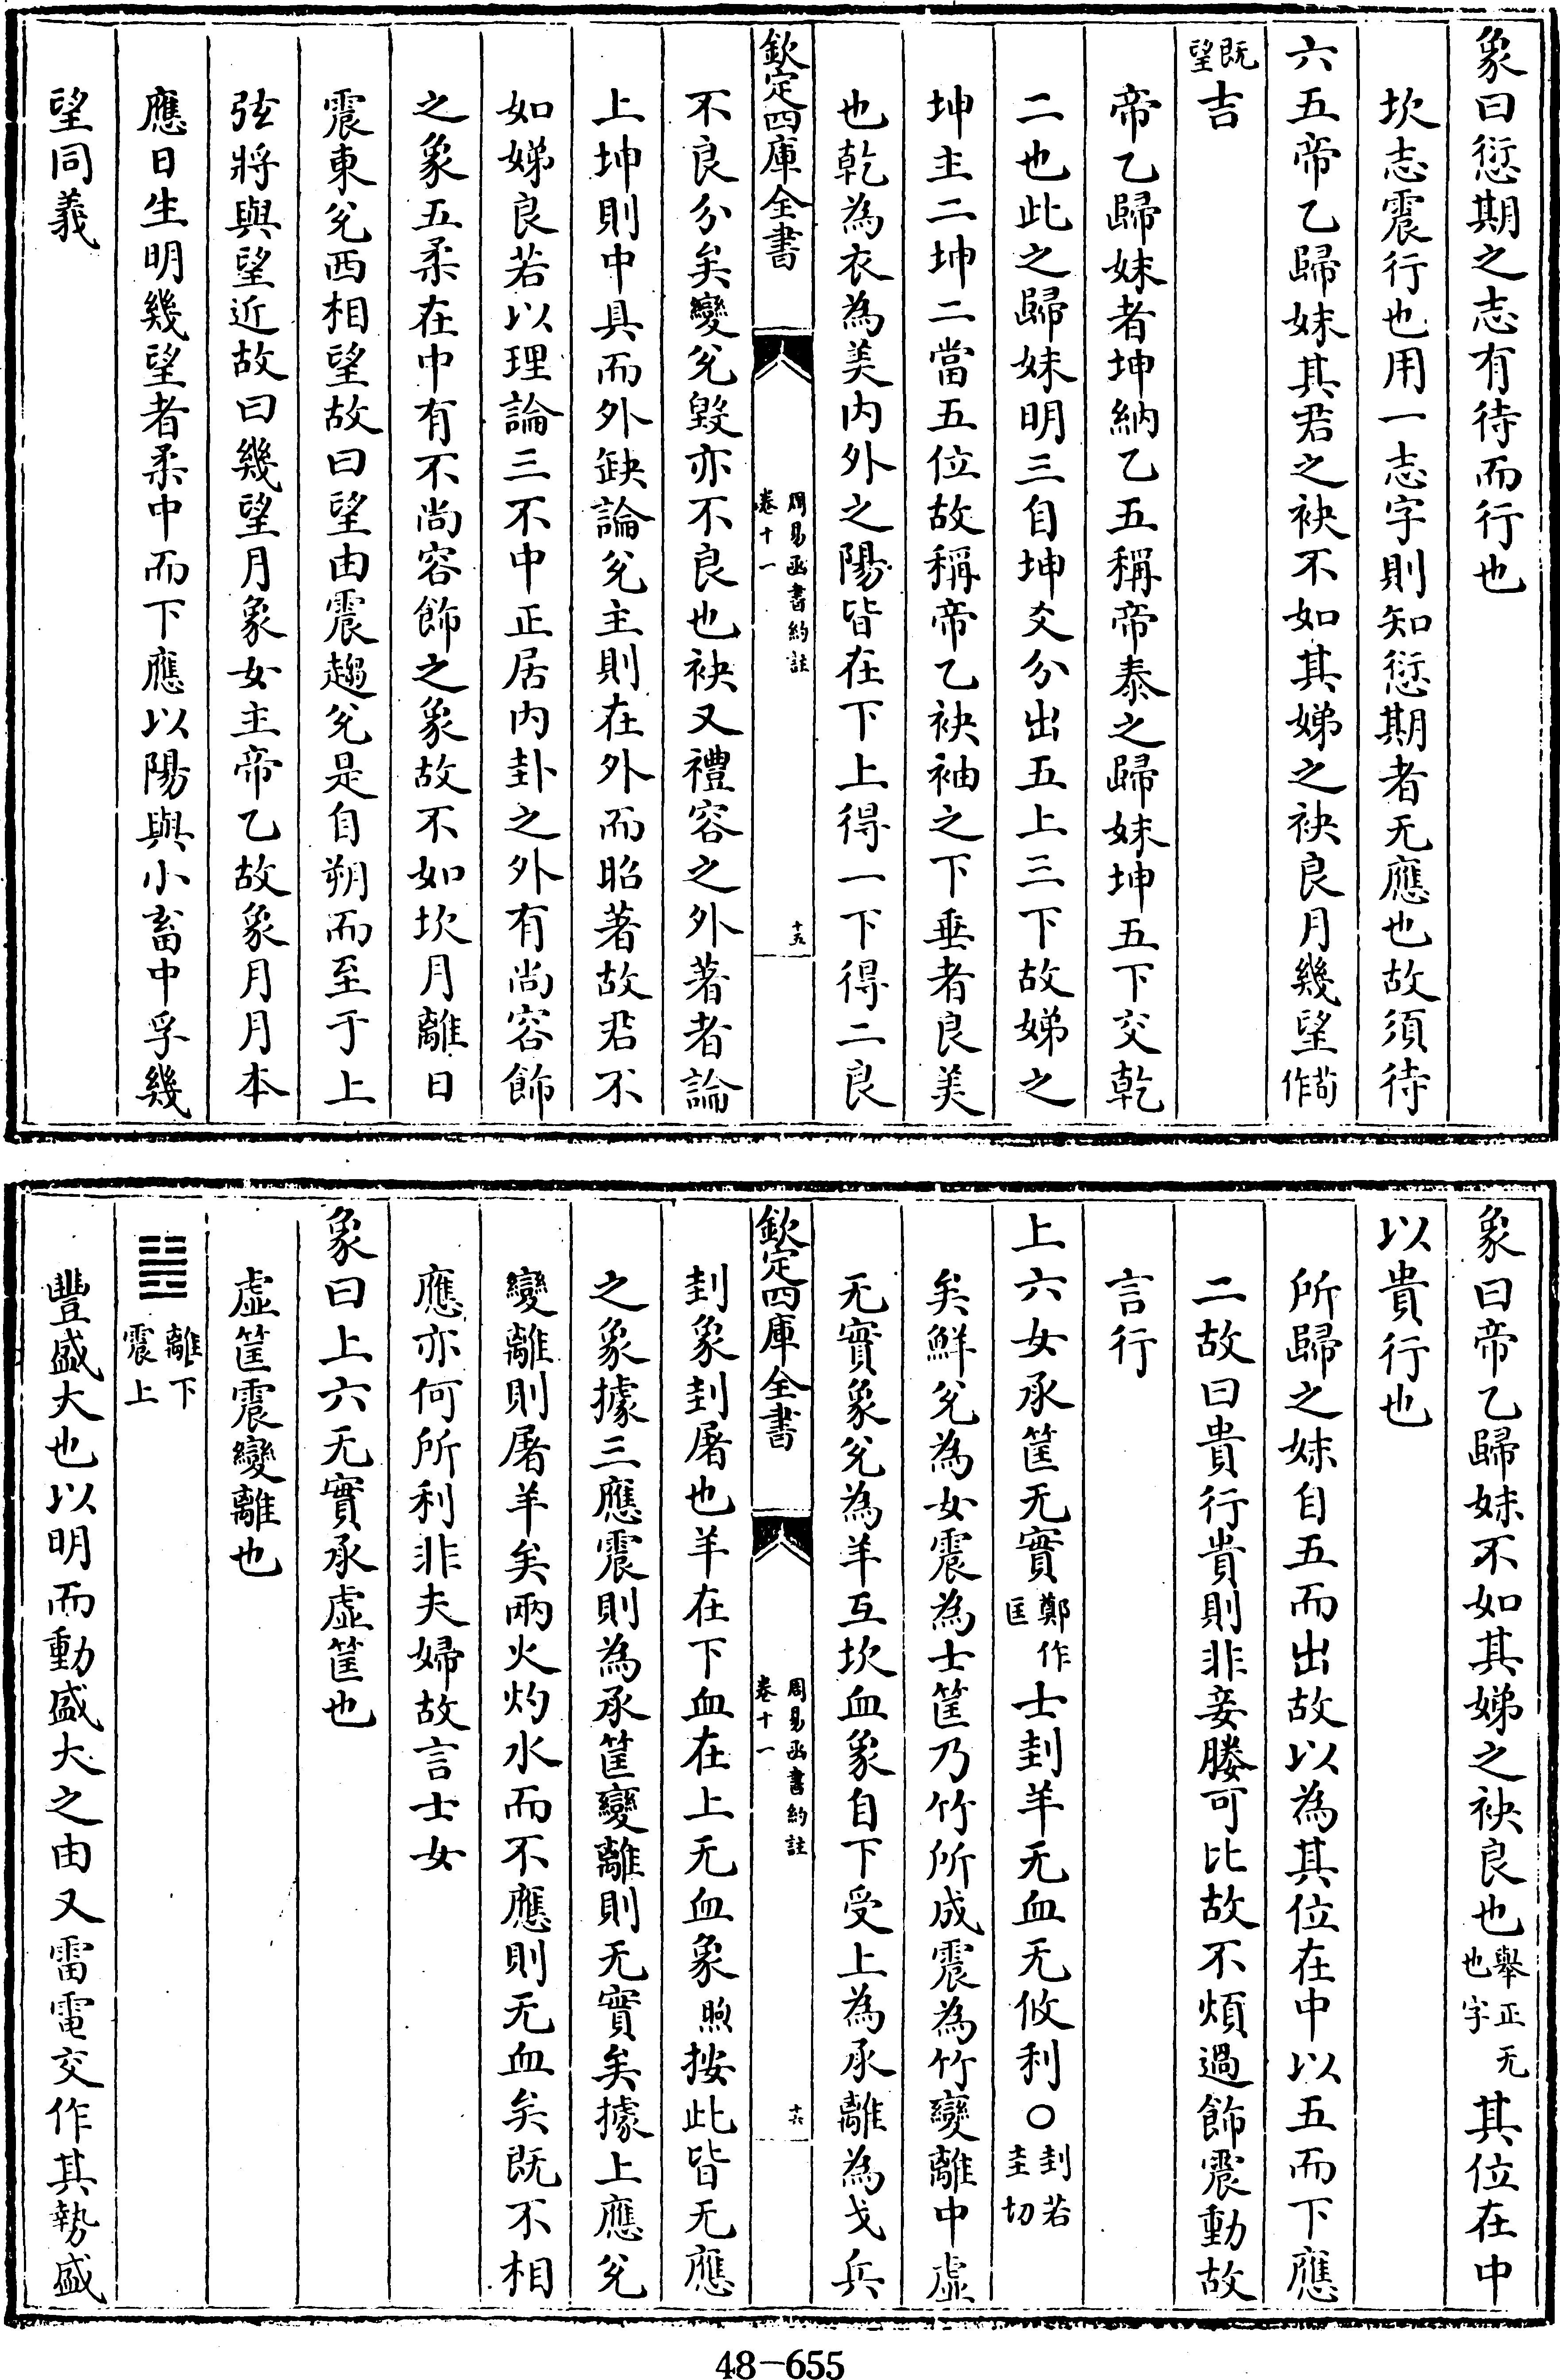 象曰愆期之志有待而行也
坎志震行也用一志字則知愆期者无應也故須待
六五帝乙歸妹其君之袂不如其娣之袂良月幾望荀作
既望吉
帝乙歸妹者坤納乙五稱帝泰之歸妹坤五下交乾
二也此之歸妹明三自坤爻分出五上三下故娣之
坤主二坤二當五位故稱帝乙袂袖之下垂者良美
也乾為衣為美内外之陽皆在下上得一下得二良
欽定四庫全書
周易函書約註
卷十一
十五
不良分矣變兌毀亦不良也袂又禮容之外著者論
上坤則中具而外缺論兌主則在外而昭著故君不
如娣良若以理論三不中正居内卦之外有尚容飾
之象五柔在中有不尚容飾之象故不如坎月離日
震東兌西相望故曰望由震趨兌是自朔而至于上
弦將與望近故曰幾望月象女主帝乙故象月月本
應日生明幾望者柔中而下應以陽與小畜中孚幾
望同義
象曰帝乙歸妹不如其娣之袂良也舉正无也字其位在中
以貴行也
所歸之妹自五而出故以為其位在中以五而下應
二故曰貴行貴則非妾媵可比故不煩過飾震動故
言行
上六女承筐无實鄭作匡士刲羊无血无攸利○刲若圭切
矣鮮兌為女震為士筐乃竹所成震為竹變離中虛
无實象兌為羊互坎血象自下受上為承離為戈兵
欽定四庫全書
周易函書約註
卷十一
十六
刲象刲屠也羊在下血在上无血象煦按此皆无應
之象據三應震則為承筐變離則无實矣據上應兌
變離則屠羊矣兩火灼水而不應則无血矣既不相
應亦何所利非夫婦故言士女
象曰上六无實承虛筐也
虛筐震變離也
䷶離下震上
豐盛大也以明而動盛大之由又雷電交作其勢盛
48-655